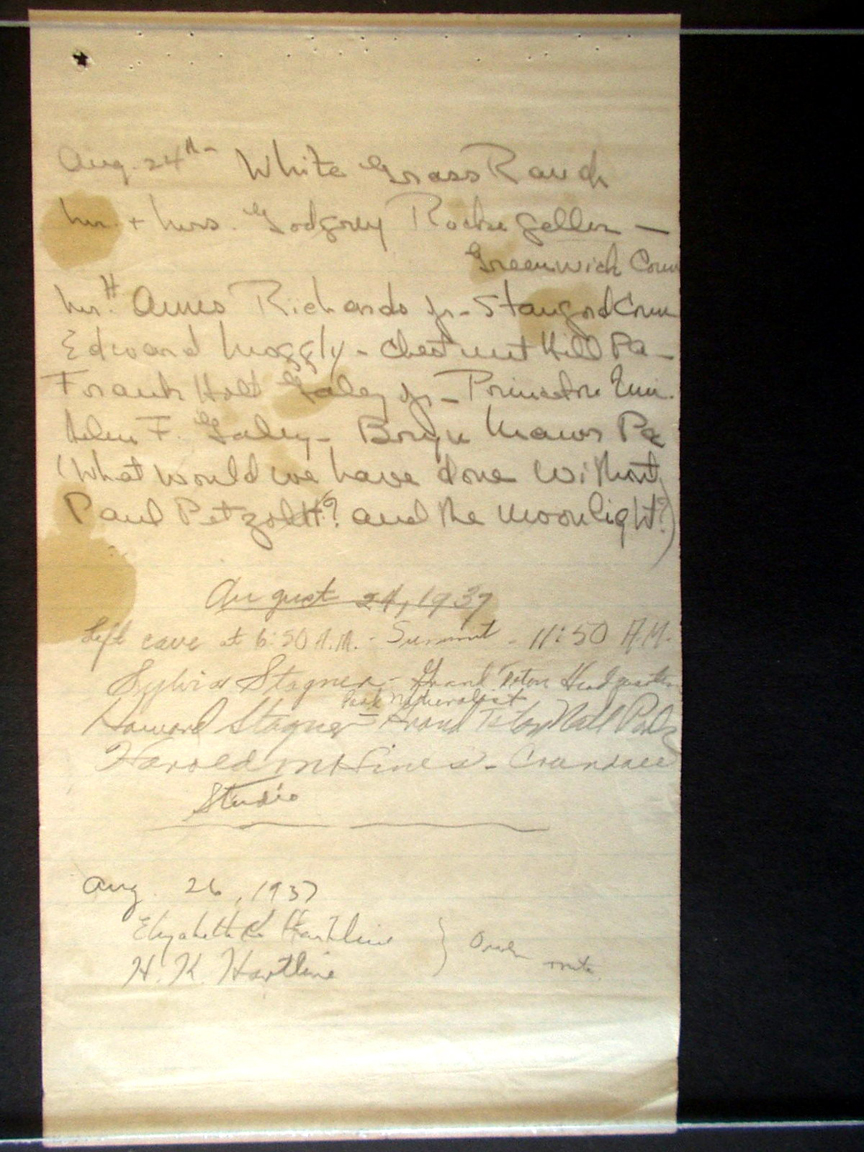 Aug. 24th - White Grass Ranch
Mr. + Mrs. Godfrey Rockefeller -
Greenwich Conn
Mr. H. Ames Richards Jr - Stamford Conn
Edward - Chestnut Hill Pa -
Frank Holt Galey Jr - Princeton Univ.
Helen F. Galey - Bryn Mawr Pa
(What would we have done without
Paul Petzoldt? and the moonlight?)
August 24, 1937
Left cave at 6:50 A.M. - Summit - 11:50 A.M.
Sylvia Stagner - Grand Teton Headquarters
Park Naturalist
Howard Stagner - Grand Teton Natl Park
Harold M Hines - Crandall
Studio
Aug. 26, 1937
Elizabeth K Hartline } Owen
H. K. Hartline rte.